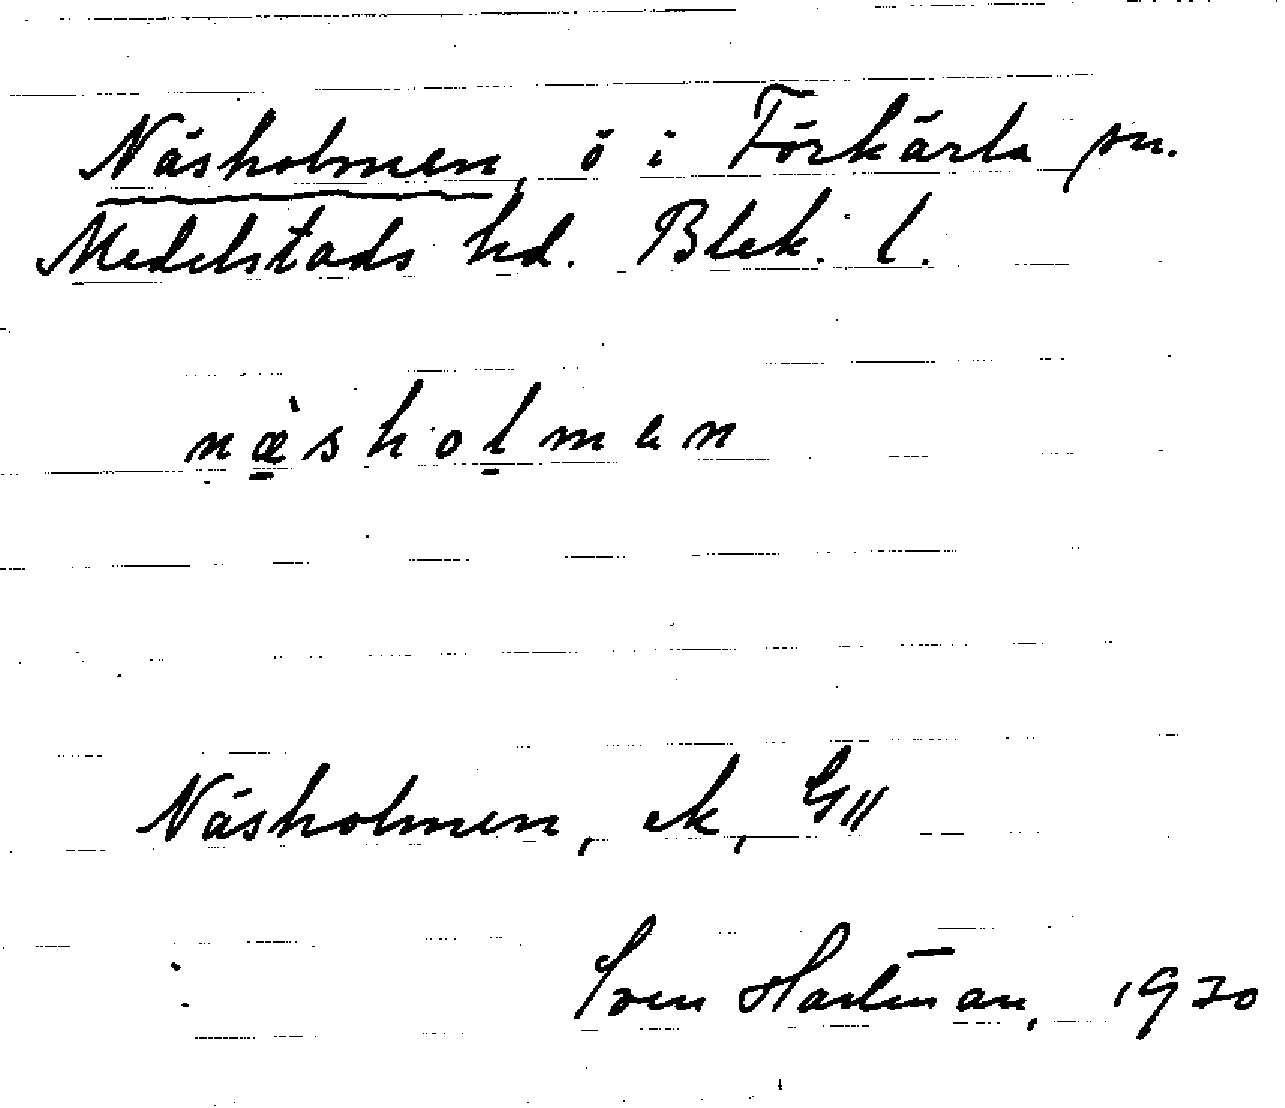 Näsholmen, ö i Förkärla sn.
Medelstads hd. Blek. l.
næ̀sholmen
Näsholmen, ek, G11
Sven Hartman, 1970